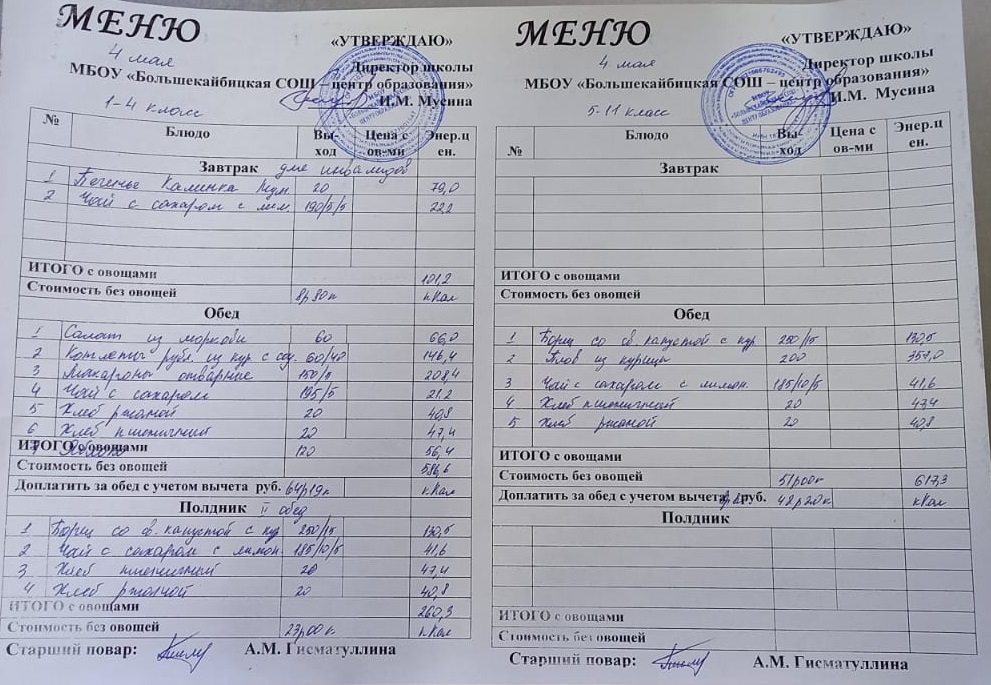 МЕНЮ
4 мая
«УТВЕРЖДАЮ»
Директор школы
МБОУ «Большекайбицкая СОШ – центр образования»
И.М. Мусина
1-4 класс
№ Блюдо Вы-ход Цена с ов-ми Энер.ц ен.
Завтрак для инвалидов
1 Печенье Калинка 20 79,0
2 Чай с сахаром с лим. 190/5/5 22,2
ИТОГО с овощами 101,2
Стоимость без овощей 8р80к кКал
Обед
1 Салат из моркови 60 66,0
2 Котлеты рубл. из кур с 60/40 146,4
3 Макароны отварные 150/8 208,4
4 Чай с сахаром 195/5 21,2
5 Хлеб ржаной 20 40,8
6 Хлеб пшеничный 20 47,4
7 Яблоко 120 56,4
ИТОГО с овощами
Стоимость без овощей 586,6
Доплатить за обед с учетом вычета руб. 64р19к кКал
Полдник II обед
1 Борщ со св. капустой с кур 250/15 130,5
2 Чай с сахаром с лимон. 185/10/5 41,6
3 Хлеб пшеничный 20 47,4
4 Хлеб ржаной 20 40,8
ИТОГО с овощами 260,3
Стоимость без овощей 23р00к кКал
Старший повар: А.М. Гисматуллина
МЕНЮ
4 мая
«УТВЕРЖДАЮ»
Директор школы
МБОУ «Большекайбицкая СОШ – центр образования»
И.М. Мусина
5-11 класс
№ Блюдо Вы-ход Цена с ов-ми Энер.ц ен.
Завтрак
ИТОГО с овощами
Стоимость без овощей
Обед
1 Борщ со св. капустой с кур 250/15 130,5
2 Плов из курицы 200 357,0
3 Чай с сахаром с лимон. 185/10/5 41,6
4 Хлеб пшеничный 20 47,4
5 Хлеб ржаной 20 40,8
ИТОГО с овощами
Стоимость без овощей 51р00к 617,3
Доплатить за обед с учетом вычета руб. 42р20к кКал
Полдник
ИТОГО с овощами
Стоимость без овощей
Старший повар: А.М. Гисматуллина